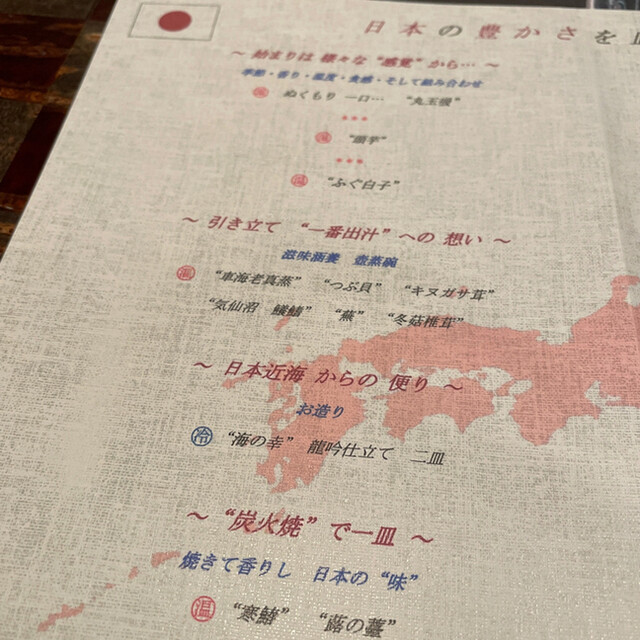 日本の豊かさを
～ 始まりは 様々な “感覚” から… ～
季節・香り・温度・食感・そして組み合わせ
温 ぬくもり 一口… “丸玉吸”
***
温
***
温 “ふぐ白子”
～ 引き立て “一番出汁” への 想い ～
滋味涵養 壺蒸碗
温 “車海老真蒸” “つぶ貝” “キヌガサ茸”
“気仙沼 鱶鰭” “蕪” “冬菇椎茸”
～ 日本近海 からの 便り ～
お造り
冷 “海の幸” 龍吟仕立て 二皿
～ “炭火焼” で一皿 ～
焼きて香りし 日本の “味”
温 “寒鰆” “蕗の薹”